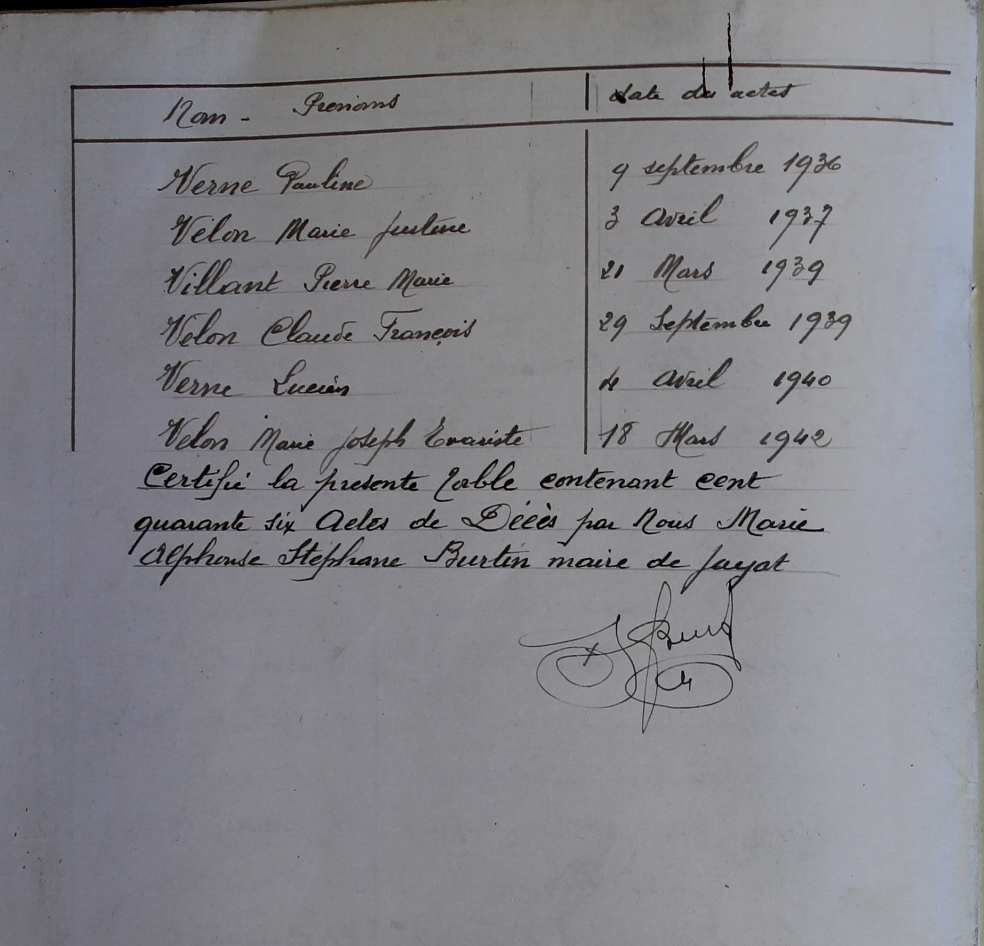 Nom - Prenoms Date du actes
Verne Pauline 9 septembre 1936
Vélon Marie Justine 3 Avril 1937
Villant Pierre Marie 21 Mars 1939
Velon Claude François 29 Septembre 1939
Verne Lucien 4 Avril 1940
Velon Marie Joseph Evariste 18 Mars 1942
Certifié la presente Table contenant cent
quarante six Actes de Décès par Nous Marie
Alphonse Stéphane Burtin maire de Jayat